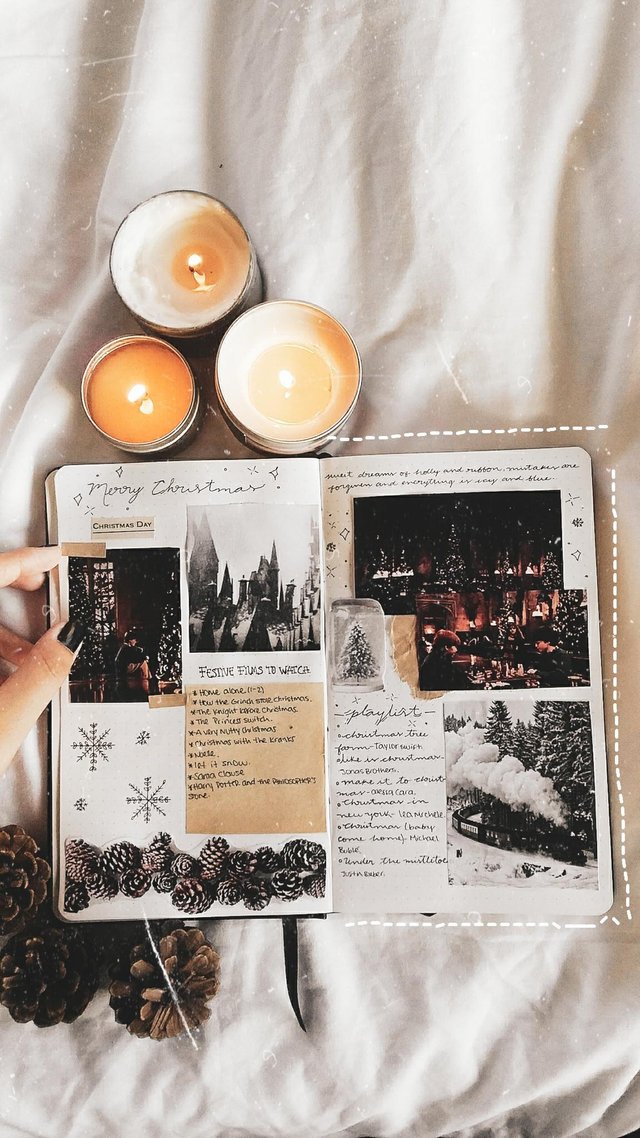 Merry Christmas
CHRISTMAS DAY
FESTIVE FILMS TO WATCH
* Home alone. (1-2)
* How the Grinch stole christmas.
* The Knight before Christmas.
* The Princess switch.
* A very Nutty Christmas
* Christmas with the Kranks
* Noelle.
* let it snow.
* Santa Clause
* Harry Potter and the Philosopher's
stone.
sweet dreams of holly and ribbon, mistakes are
forgiven and everything is icy and blue.
-playlist-
christmas tree
farm - Taylor Swift.
like its christmas -
Jonas Brothers.
make it to christ-
mas - alessia Cara.
Christmas in
new york - lea Michele.
Christmas (baby
come home) Michael
Bublé.
Under the mistletoe
Justin Bieber.